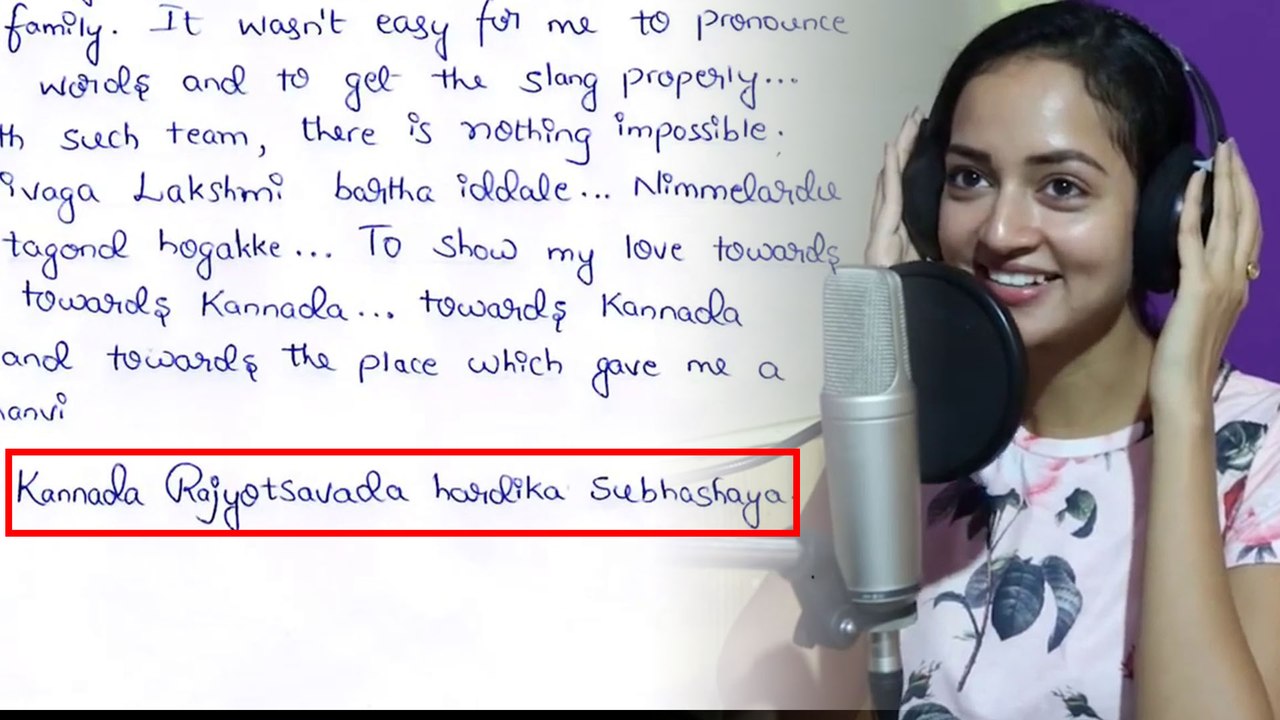 family. It wasn't easy for me to pronounce
words and to get the slang properly...
th such team, there is nothing impossible.
ivaga Lakshmi bartha iddale... Nimmelardu
tagond hogakke... To show my love towards
towards Kannada... towards Kannada
and towards the place which gave me a
anvi
Kannada Rajyotsavada hardika Subhashaya.